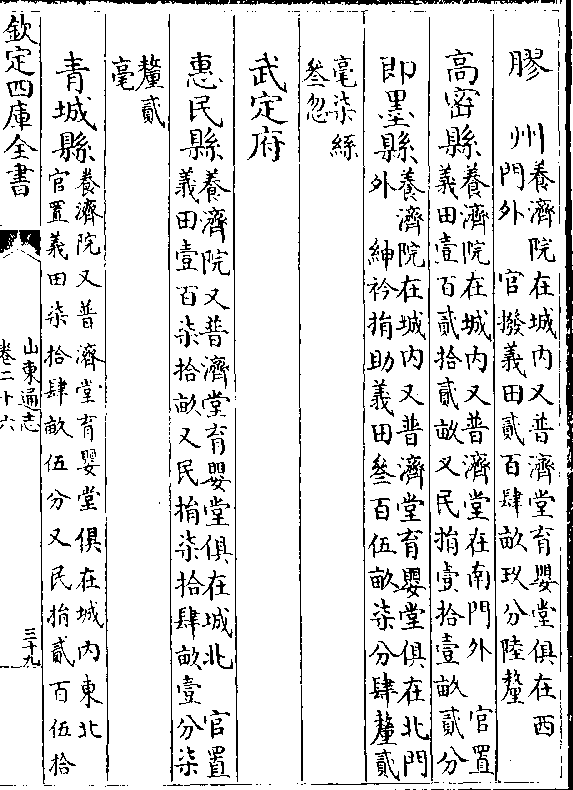 膠　州養濟院在城内又普濟堂育嬰堂俱在西
門外　官撥義田貳百肆畝玖分陸釐
高密縣養濟院在城内又普濟堂在南門外　官置
義田壹百貳拾貳畝又民捐壹拾壹畝貳分
即墨縣養濟院在城内又普濟堂育嬰堂俱在北門
外　紳衿捐助義田叄百伍畝柒分肆釐貳
毫柒絲
叄忽
武定府
惠民縣養濟院又普濟堂育嬰堂俱在城北　官置
義田壹百柒拾畝又民捐柒拾肆畝壹分柒
釐貳
毫
青城縣養濟院又普濟堂育嬰堂俱在城内東北
官置義田柒拾肆畝伍分又民捐貳百伍拾
欽定四庫全書
山東通志
卷三十六
三十九